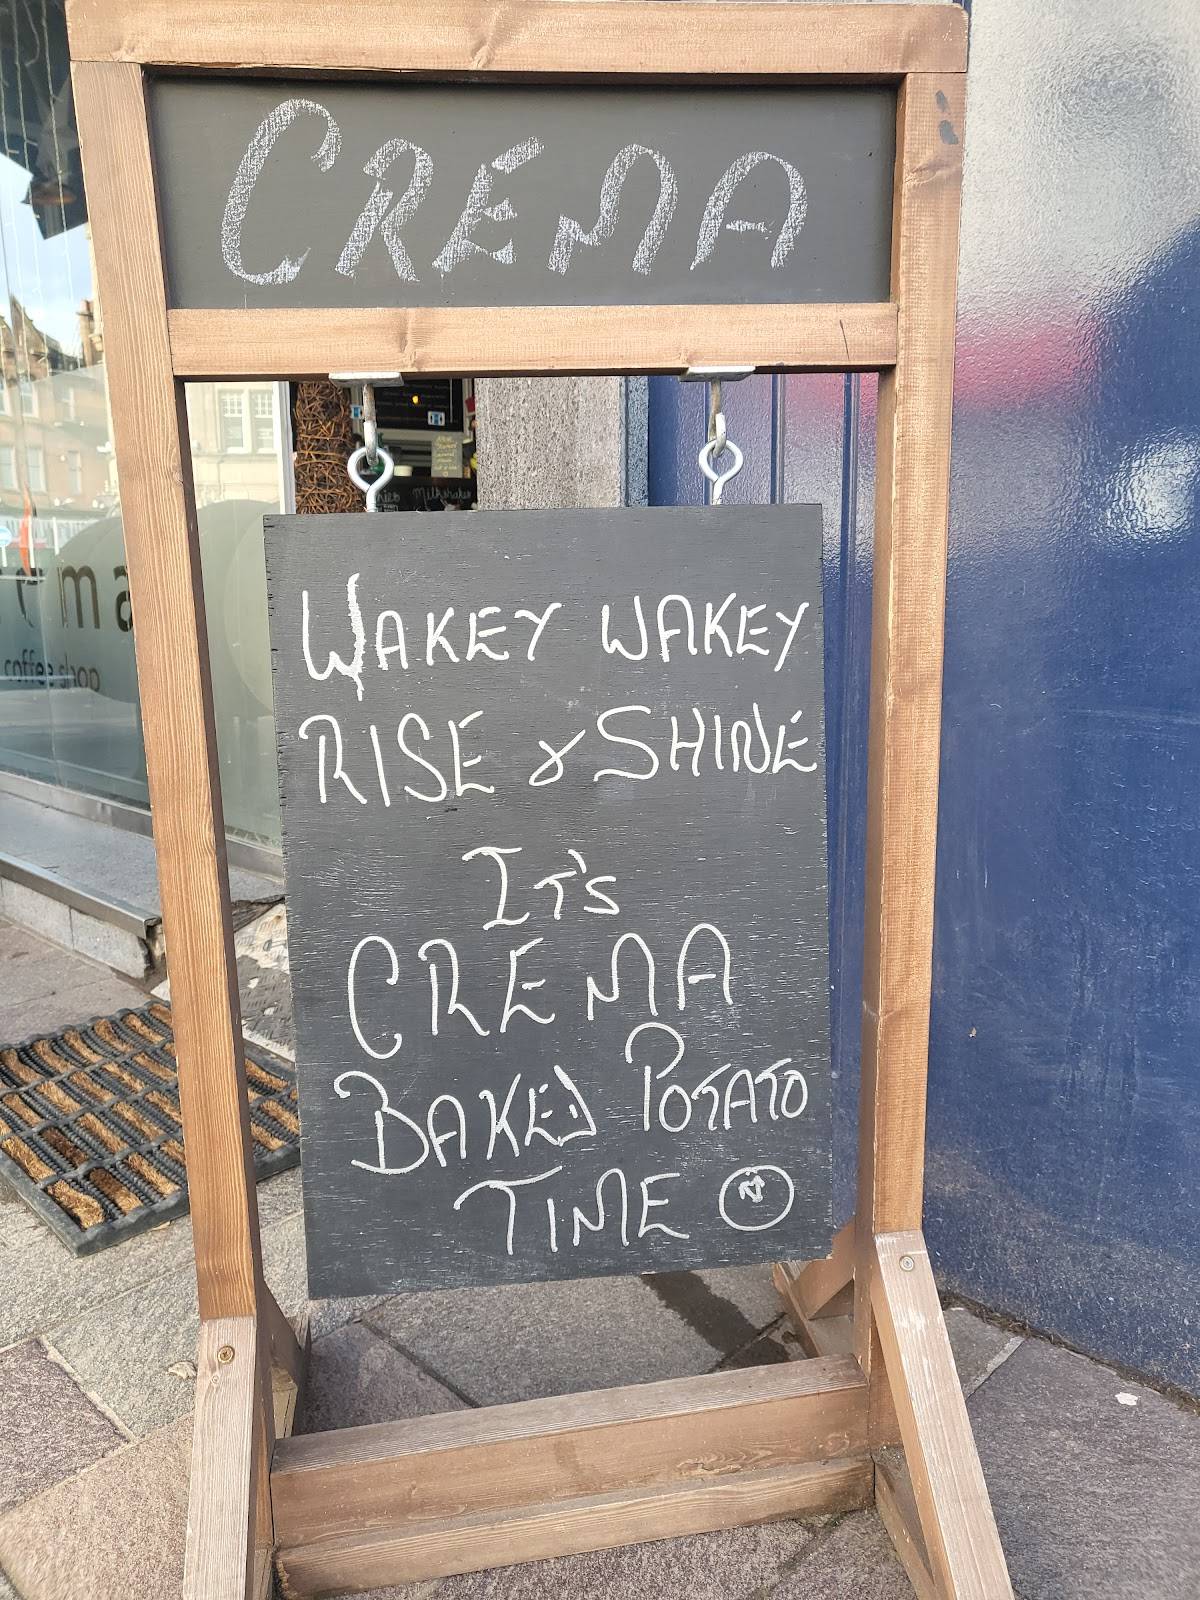 CREMA
Milkshakes
ma
coffee shop
WAKEY WAKEY
RISE & SHINE
IT'S
CREMA
BAKED POTATO
TIME